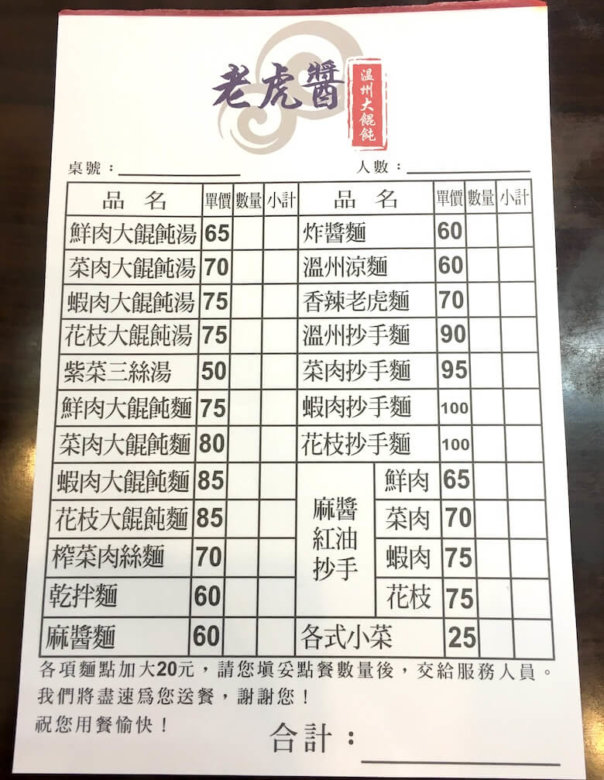 老虎醬
溫州大餛飩
桌號： 人數：
品名 單價 數量 小計 品名 單價 數量 小計
鮮肉大餛飩湯 65 炸醬麵 60
菜肉大餛飩湯 70 溫州涼麵 60
蝦肉大餛飩湯 75 香辣老虎麵 70
花枝大餛飩湯 75 溫州抄手麵 90
紫菜三絲湯 50 菜肉抄手麵 95
鮮肉大餛飩麵 75 蝦肉抄手麵 100
菜肉大餛飩麵 80 花枝抄手麵 100
蝦肉大餛飩麵 85 麻醬紅油抄手 鮮肉 65
花枝大餛飩麵 85 菜肉 70
榨菜肉絲麵 70 蝦肉 75
乾拌麵 60 花枝 75
麻醬麵 60 各式小菜 25
各項麵點加大20元，請您填妥點餐數量後，交給服務人員。
我們將盡速為您送餐，謝謝您！
祝您用餐愉快！
合計：